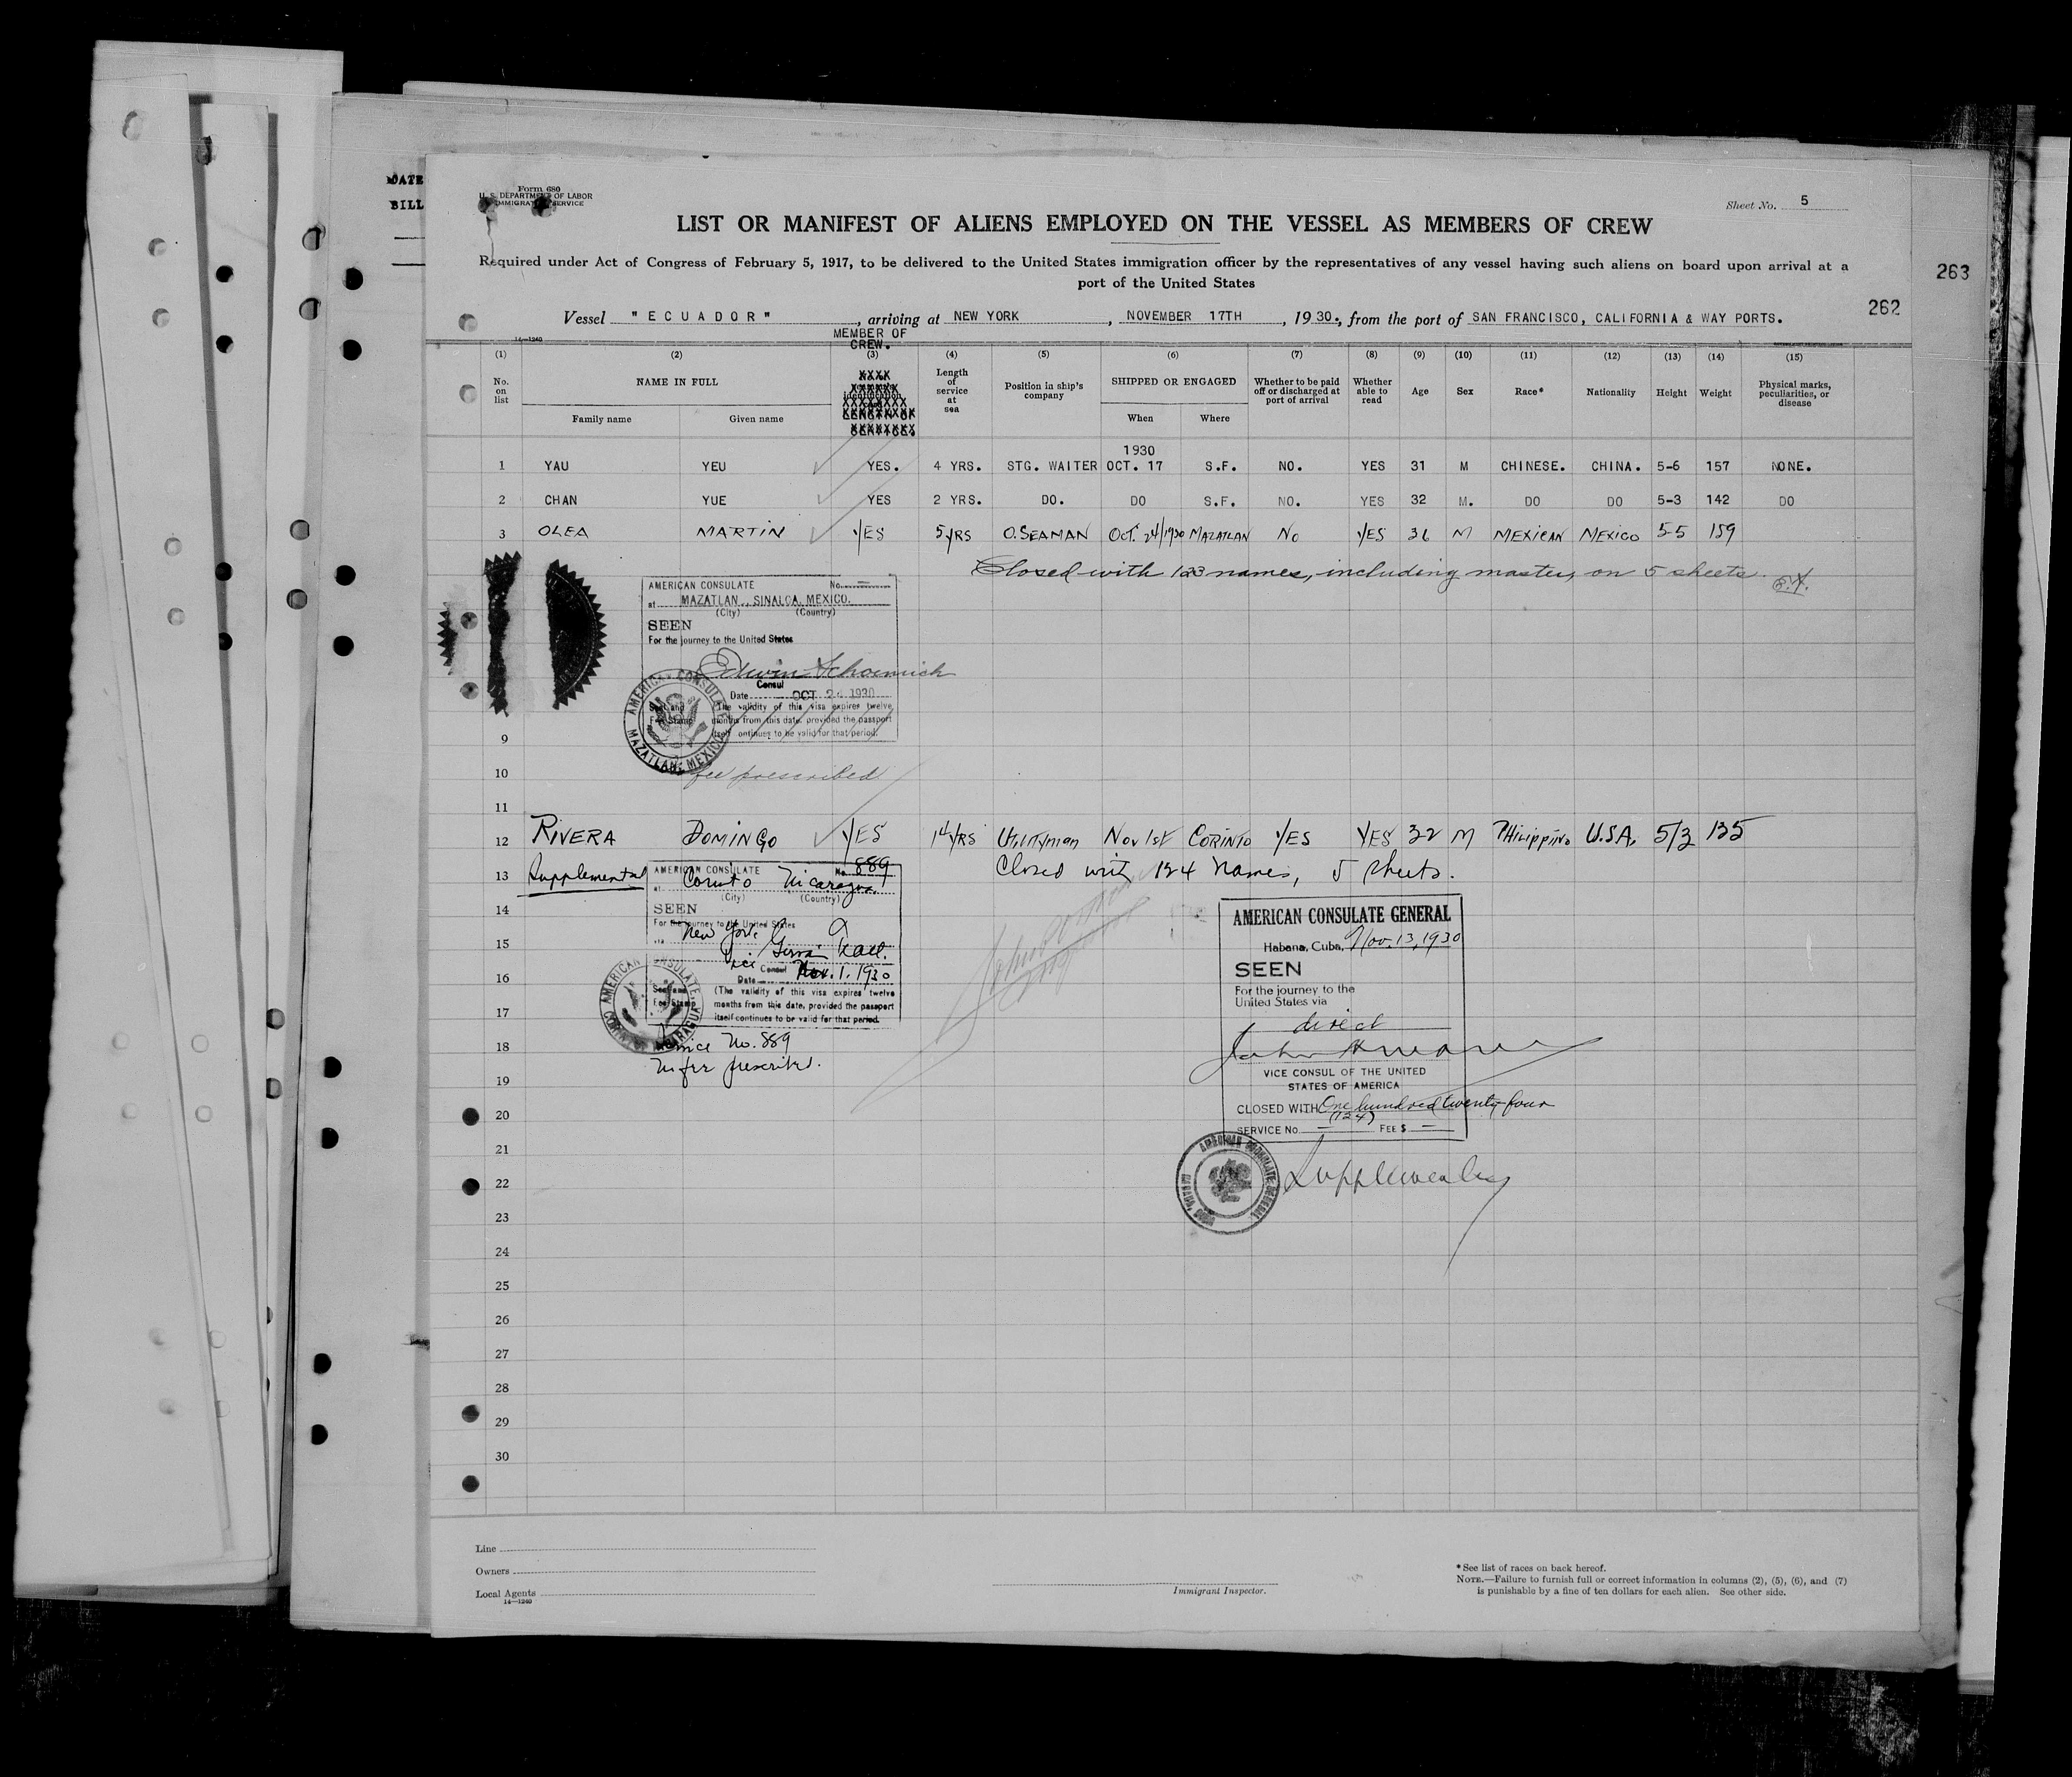 DATE
BILL
Form 680
U. S. DEPARTMENT OF LABOR
IMMIGRATION SERVICE
Sheet No. 5
LIST OR MANIFEST OF ALIENS EMPLOYED ON THE VESSEL AS MEMBERS OF CREW
Required under Act of Congress of February 5, 1917, to be delivered to the United States immigration officer by the representatives of any vessel having such aliens on board upon arrival at a
port of the United States
263
262
Vessel "ECUADOR", arriving at NEW YORK, NOVEMBER 17TH, 1930., from the port of SAN FRANCISCO, CALIFORNIA & WAY PORTS.
14—1240
MEMBER OF
CREW.
(1) (2) (3) (4) (5) (6) (7) (8) (9) (10) (11) (12) (13) (14) (15)
No. on list NAME IN FULL Length of service at sea Position in ship's company SHIPPED OR ENGAGED Whether to be paid off or discharged at port of arrival Whether able to read Age Sex Race* Nationality Height Weight Physical marks, peculiarities, or disease
Family name Given name When Where
1930
1 YAU YEU YES. 4 YRS. STG. WAITER OCT. 17 S.F. NO. YES 31 M CHINESE. CHINA. 5-6 157 NONE.
2 CHAN YUE YES 2 YRS. DO. DO S.F. NO. YES 32 M. DO DO 5-3 142 DO
3 OLEA MARTIN YES 5 YRS O. SEAMAN OCT. 24/1930 MAZATLAN No YES 36 M MEXICAN MEXICO 5-5 159
Closed with 123 names, including master, on 5 sheets.
AMERICAN CONSULATE No. —
at MAZATLAN, SINALOA, MEXICO.
(City) (Country)
SEEN
For the journey to the United States
Consul
Date OCT 24 1930
Seal and Fee Stamp
The validity of this visa expires twelve
months from this date, provided the passport
itself continues to be valid for that period.
AMERICAN CONSULATE MAZATLAN, MEXICO
fee prescribed
9
10
11
12 RIVERA DOMINGO YES 14 YRS Utilityman Nov 1st CORINTO YES YES 32 M PHILIPPINO U.S.A. 5/3 135
13 Supplemental Closed with 124 names, 5 sheets.
AMERICAN CONSULATE No. 889
at Corinto Nicaragua
(City) (Country)
SEEN
For the journey to the United States
via New York
Vice Consul
Date Nov. 1. 1930
Seal and Fee Stamp
(The validity of this visa expires twelve
months from this date, provided the passport
itself continues to be valid for that period.
AMERICAN CONSULATE CORINTO NICARAGUA
Service No. 889
No fee prescribed.
14
15
16
17
18
19
20
21
22
23
24
25
26
27
28
29
30
AMERICAN CONSULATE GENERAL
Habana, Cuba, Nov. 13, 1930
SEEN
For the journey to the
United States via
direct
VICE CONSUL OF THE UNITED
STATES OF AMERICA
CLOSED WITH One hundred twenty four
(124)
SERVICE No. — FEE $ —
AMERICAN CONSULATE GENERAL
Supplementary
Line
Owners
Local Agents
14—1240
Immigrant Inspector.
*See list of races on back hereof.
NOTE.—Failure to furnish full or correct information in columns (2), (5), (6), and (7)
is punishable by a fine of ten dollars for each alien. See other side.